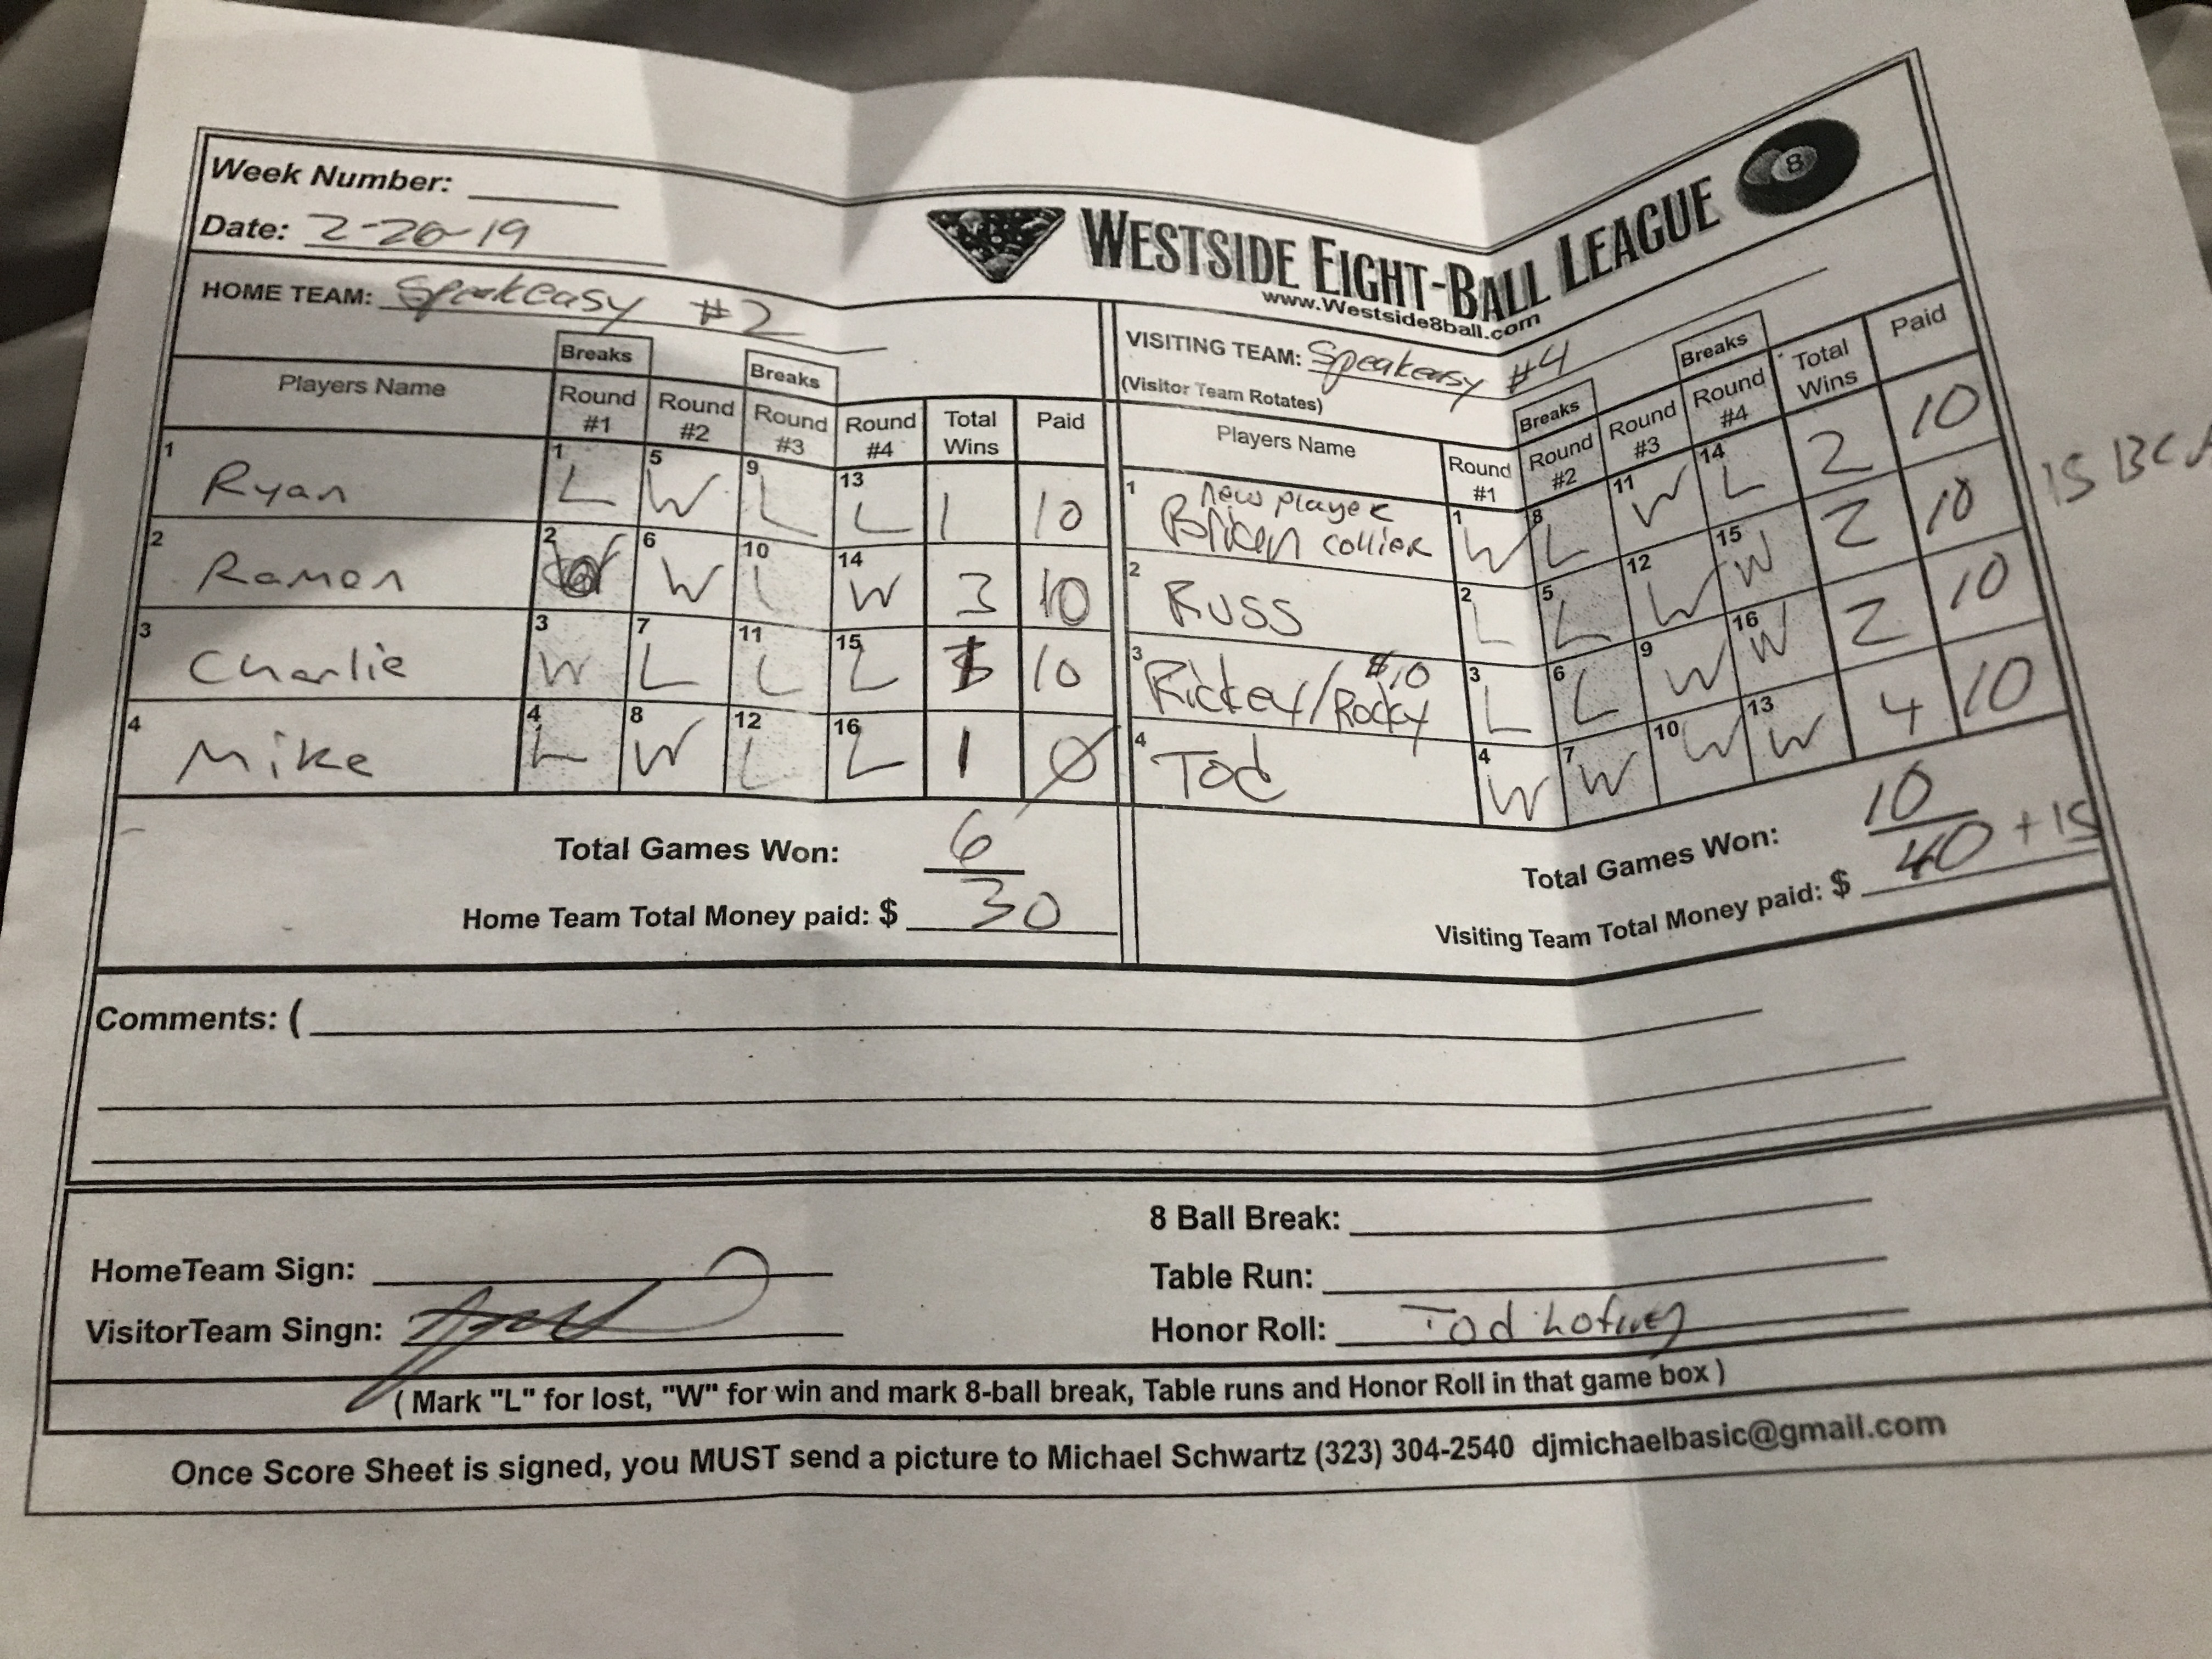 Week Number:
Date: 2-20-19
WESTSIDE EIGHT-BALL LEAGUE
8
www.Westside8ball.com
HOME TEAM: Speakeasy #2
Breaks Breaks
Players Name Round #1 Round #2 Round #3 Round #4 Total Wins Paid
1 Ryan 1 L 5 W 9 L 13 L 1 10
2 Ramon 2 W 6 W 10 L 14 W 3 10
3 Charlie 3 W 7 L 11 L 15 L 1 10
4 Mike 4 L 8 W 12 L 16 L 1 Ø
Total Games Won: 6
Home Team Total Money paid: $ 30
VISITING TEAM: Speakeasy #4
(Visitor Team Rotates)
Breaks Breaks
Players Name Round #1 Round #2 Round #3 Round #4 Total Wins Paid
new player
1 collier 1 W 8 L 11 W 14 L 2 10
15 BCA
2 Russ 2 L 5 L 12 W 15 W 2 10
$10
3 Rickey/Rocky 3 L 6 L 9 W 16 W 2 10
4 Tod 4 W 7 W 10 W 13 W 4 10
Total Games Won: 10
Visiting Team Total Money paid: $ 40 + 15
Comments: (
HomeTeam Sign:
VisitorTeam Singn:
8 Ball Break:
Table Run:
Honor Roll: Tod
( Mark "L" for lost, "W" for win and mark 8-ball break, Table runs and Honor Roll in that game box )
Once Score Sheet is signed, you MUST send a picture to Michael Schwartz (323) 304-2540 djmichaelbasic@gmail.com